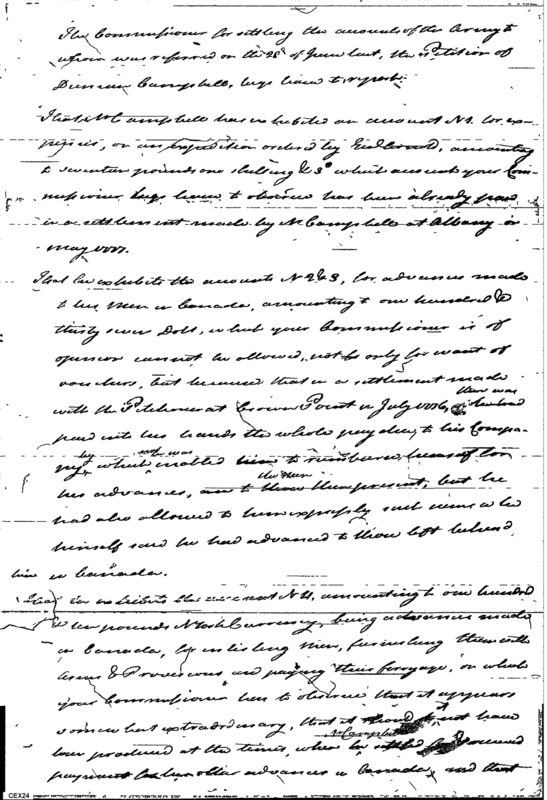 The Commissioner for settling the accounts of the Army to
whom was referred on the 28th of June last, the Petition of
Duncan Campbell, begs leave to report.
That Mr Campbell has exhibited an account N1. for ex-
pences, on an expedition ordered by amounting
to seventeen pounds one shilling & 3d which account your Com-
missioner begs leave to observe has been already paid
in a settlement made by Mr Campbell at Albany in
may
That he exhibits the accounts N 2 & 3, for advances made
to his Men in Canada, amounting to one hundred &
thirty seven Dolls, which your Commissioner is of
opinion cannot be allowed, not only for want of
vouchers, but because that in a settlement made
there was
with the Petitioner at Crown Point in July
paid into his hands the whole pay due, to his Compa-
by which enabled him to reimburse himself for
the then
his advances, to those present, but he
had also allowed to him expressly such sums as he
himself said he had advanced to those left behind
him in Canada.
That he exhibits the account N 4, amounting to one hundred
& ten pounds York Currency, being advances made
in Canada, for inlisting Men, furnishing them with
Arms & Provisions, and paying their ferryage, on which
your Commissioner has to observe that it appears
somewhat extraordinary, that it should not have
Mr Campbell
been produced at the time, when he settled & received
payment for his other advances in Canada, and that
CEX24